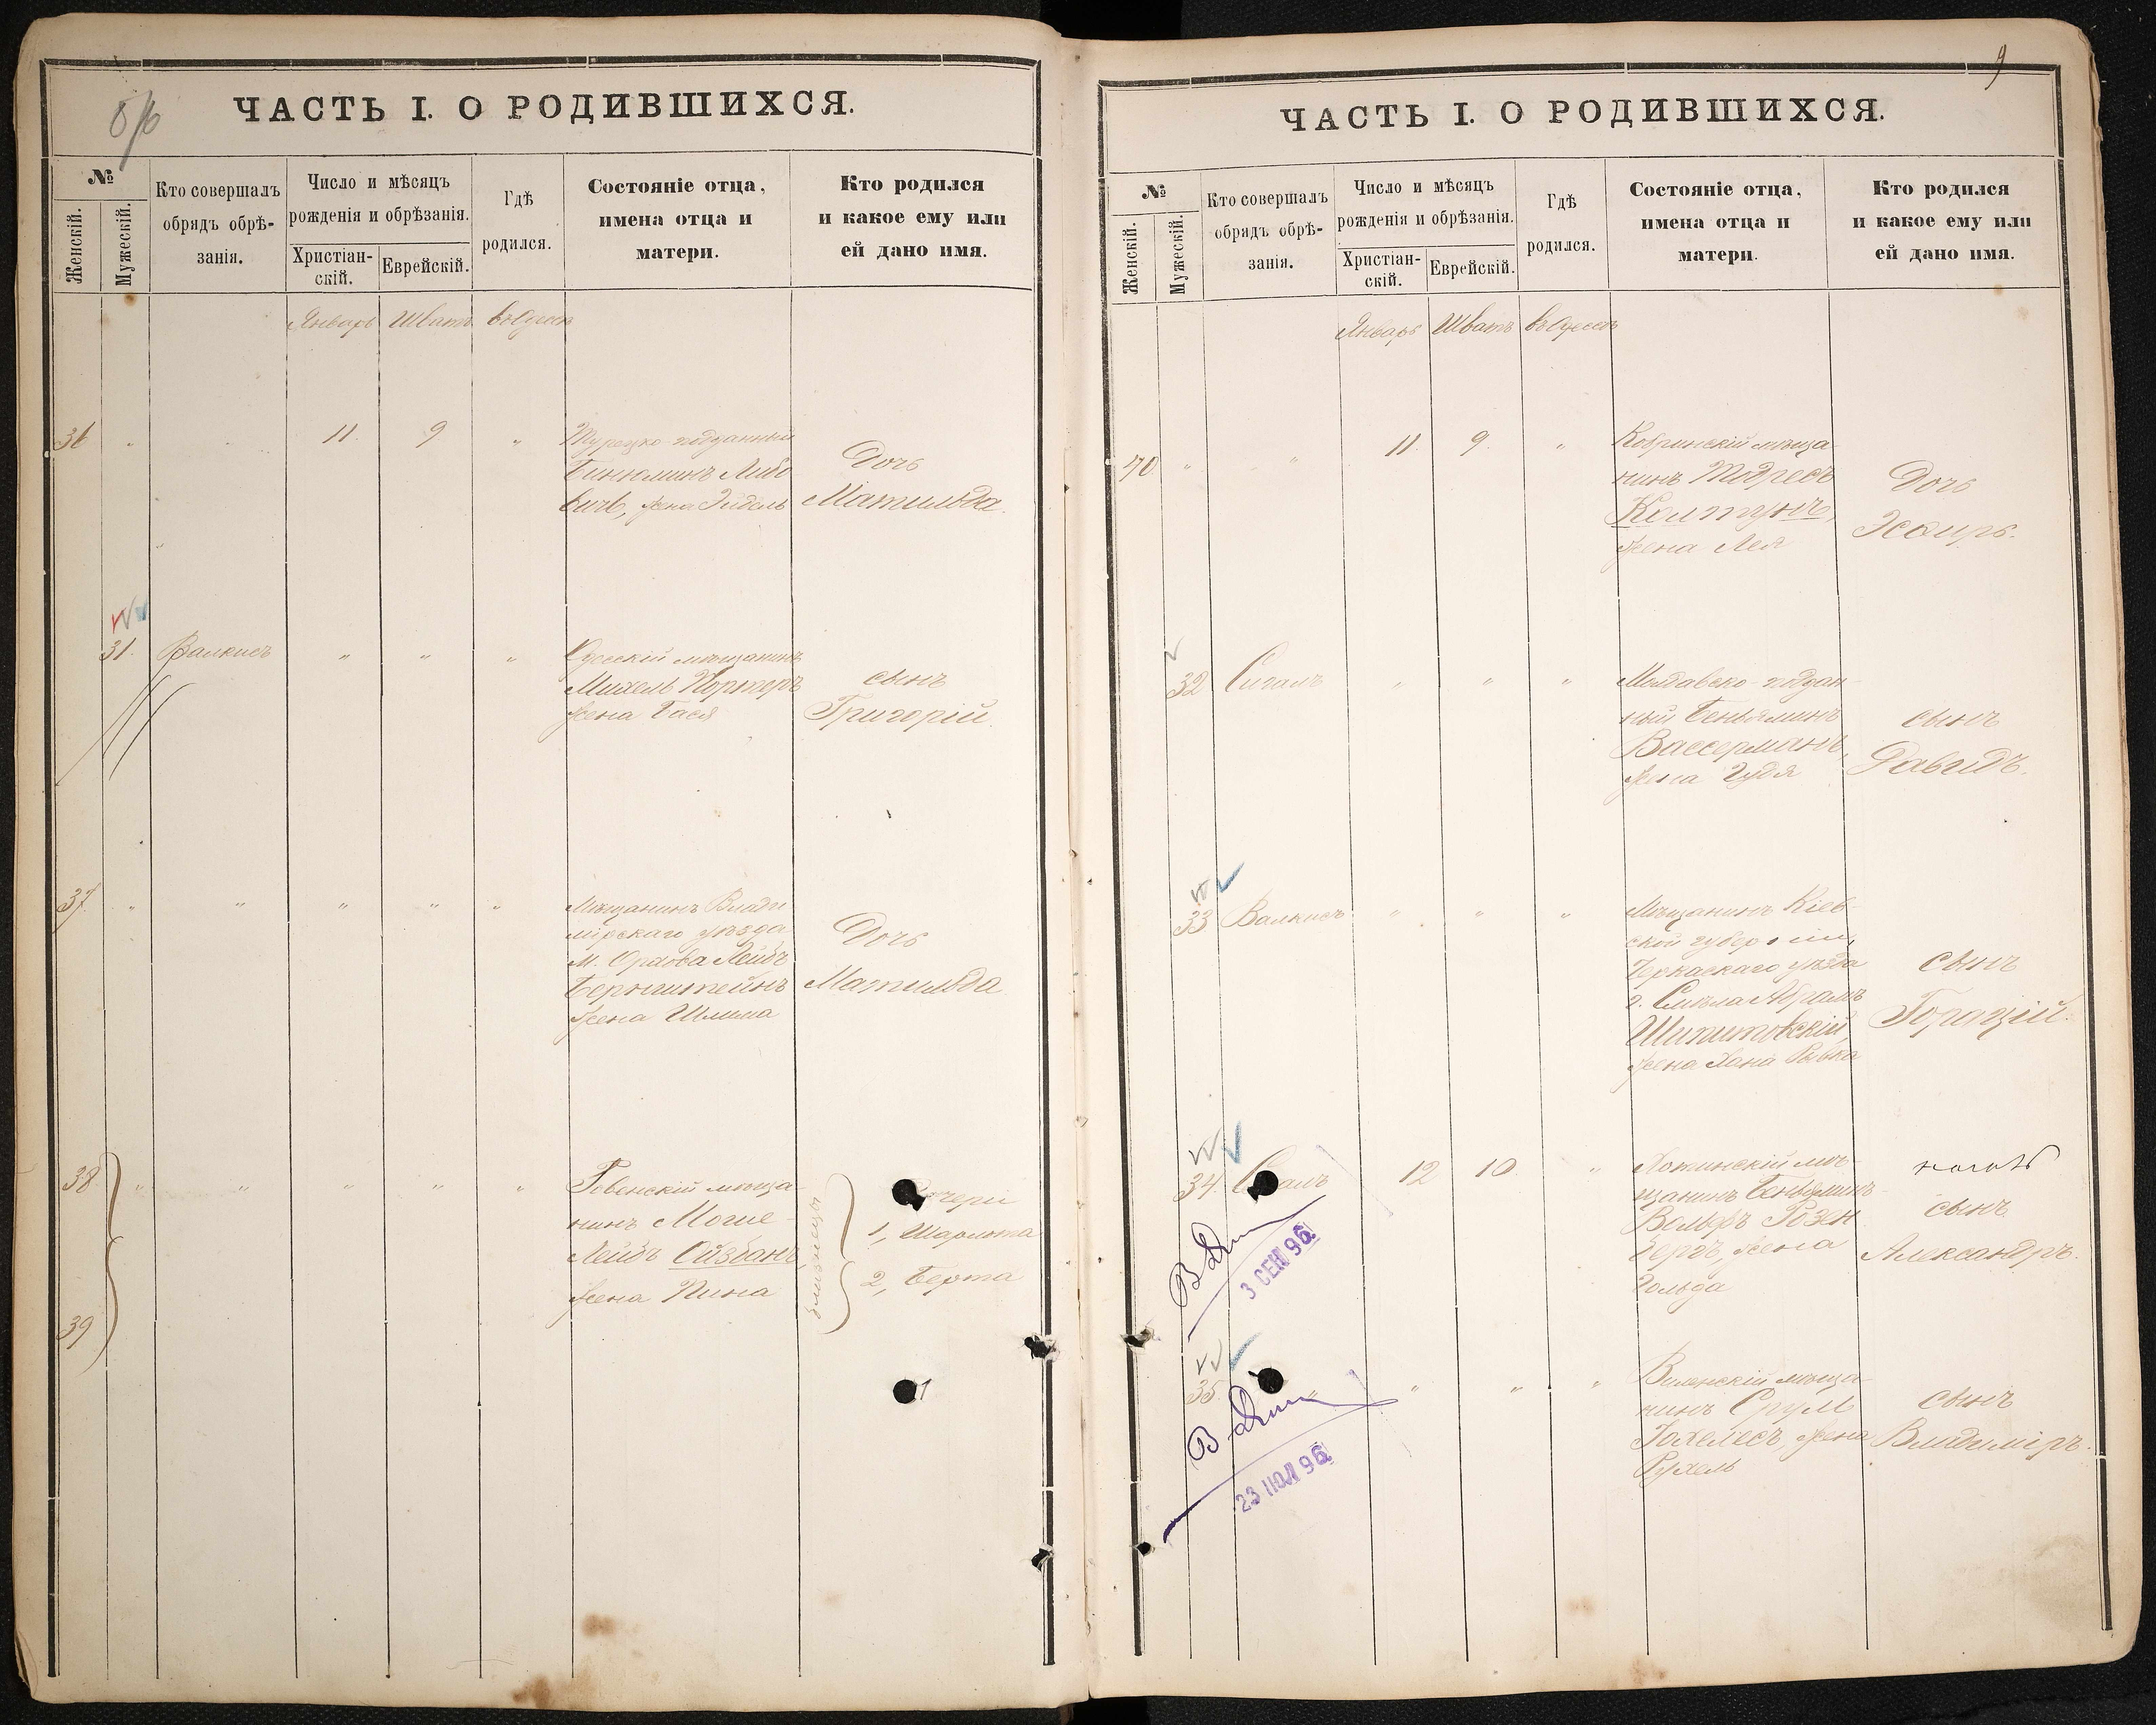 ЧАСТЬ I. О РОДИВШИХСЯ.
№
Женскій.
Мужескій.
Кто совершалъ
обрядъ обрѣ-
занія.
Число и мѣсяцъ
рожденія и обрѣзанія.
Христіан-
скій.
Еврейскій.
Гдѣ
родился.
Состояніе отца,
имена отца и
матери.
Кто родился
и какое ему или
ей дано имя.
Январь Шватъ въ Одессѣ
36 " " 11. 9 "
Турецко-подданный
Биніоминъ Либо
вичъ, жена Эйдель
Дочь
Матильда.
31. Валкисъ " " "
Одесскій мѣщанинъ
Михель Портеръ
жена Бася
сынъ
Григорій.
37. " " " " "
Мѣщанинъ Влади
мірскаго уѣзда
Лейбъ
Бернштейнъ
жена Шлима
Дочь
Матильда
38 " " " " "
39
Ровенскій мѣща-
нинъ Мошко-
Лейбъ Ойзбанъ,
жена Пина
близнецы
1, Шарлота
2, Берта
9
ЧАСТЬ I. О РОДИВШИХСЯ.
№
Женскій.
Мужескій.
Кто совершалъ
обрядъ обрѣ-
занія.
Число и мѣсяцъ
рожденія и обрѣзанія.
Христіан-
скій.
Еврейскій.
Гдѣ
родился.
Состояніе отца,
имена отца и
матери.
Кто родился
и какое ему или
ей дано имя.
Январь Шватъ въ Одессѣ
40. " " 11. 9. "
Кобринскій мѣща-
нинъ Тодресъ
Колтунъ,
жена Лея
Дочь
Эсѳирь.
32 Сигалъ " " "
Молдавско-поддан-
ный Беньяминъ
Вассерманъ,
жена Гудя
сынъ
Давидъ.
33 Валкисъ " " "
Мѣщанинъ Кіев-
ской губерніи,
Черкаскаго уѣзда
г. Смѣла Абрамъ
Шпитовскій,
жена Хана Рывка
сынъ
Горацій.
34. 12 10 "
Хотинскій мѣ-
щанинъ Беньяминъ-
Вольфъ Розен
бергъ, жена
Гольда
сынъ
Александръ.
3 СЕН 96
35 " " " "
Виленскій мѣща-
нинъ Сруль
Іохелесъ, жена
Рухель
сынъ
Владиміръ.
23 ІЮЛ 96